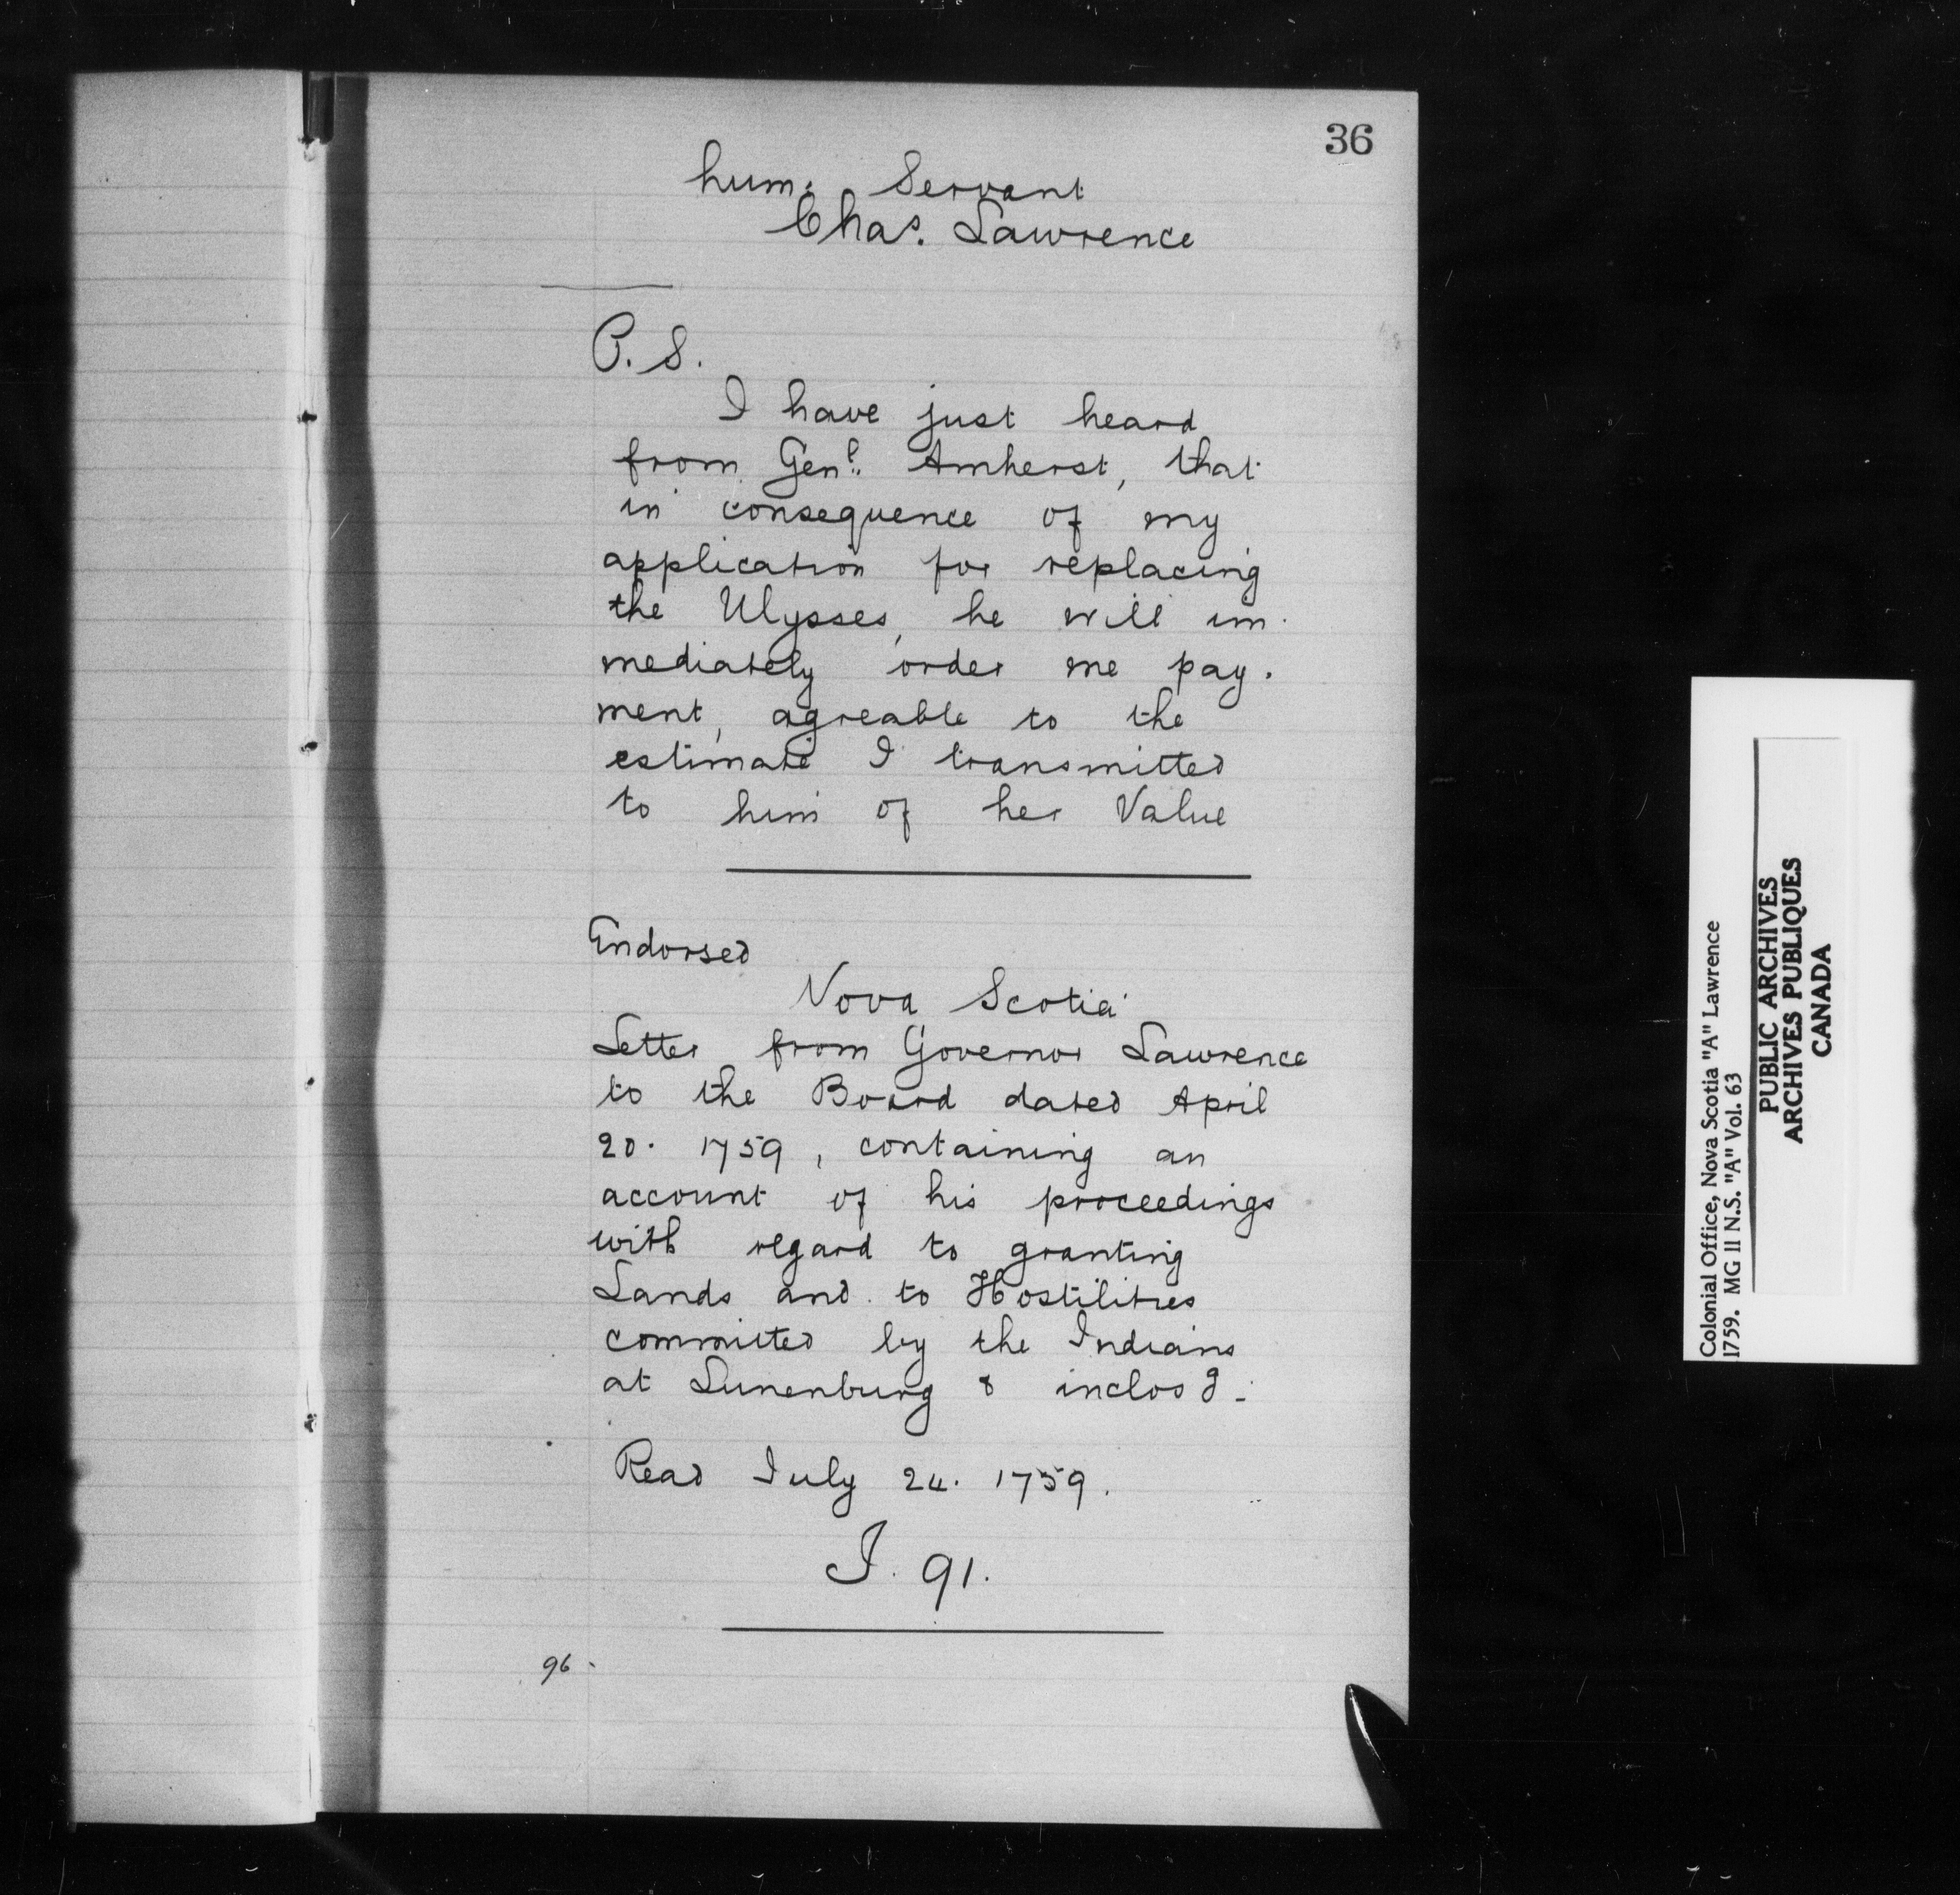 36
hum: Servant
Chas. Lawrence
P. S.
I have just heard
from Genl. Amherst, that
in consequence of my
application for replacing
the Ulysses, he will im-
mediately order me pay-
ment, agreable to the
estimate I transmitted
to him of her Value
Endorsed
Nova Scotia
Letter from Governor Lawrence
to the Board dated April
20. 1759, containing an
account of his proceedings
with regard to granting
Lands and to Hostilities
committed by the Indians
at Lunenburg & inclosg.
Read July 24. 1759.
I. 91.
96.
Colonial Office, Nova Scotia "A" Lawrence
1759. MG 11 N.S. "A" Vol. 63
PUBLIC ARCHIVES
ARCHIVES PUBLIQUES
CANADA